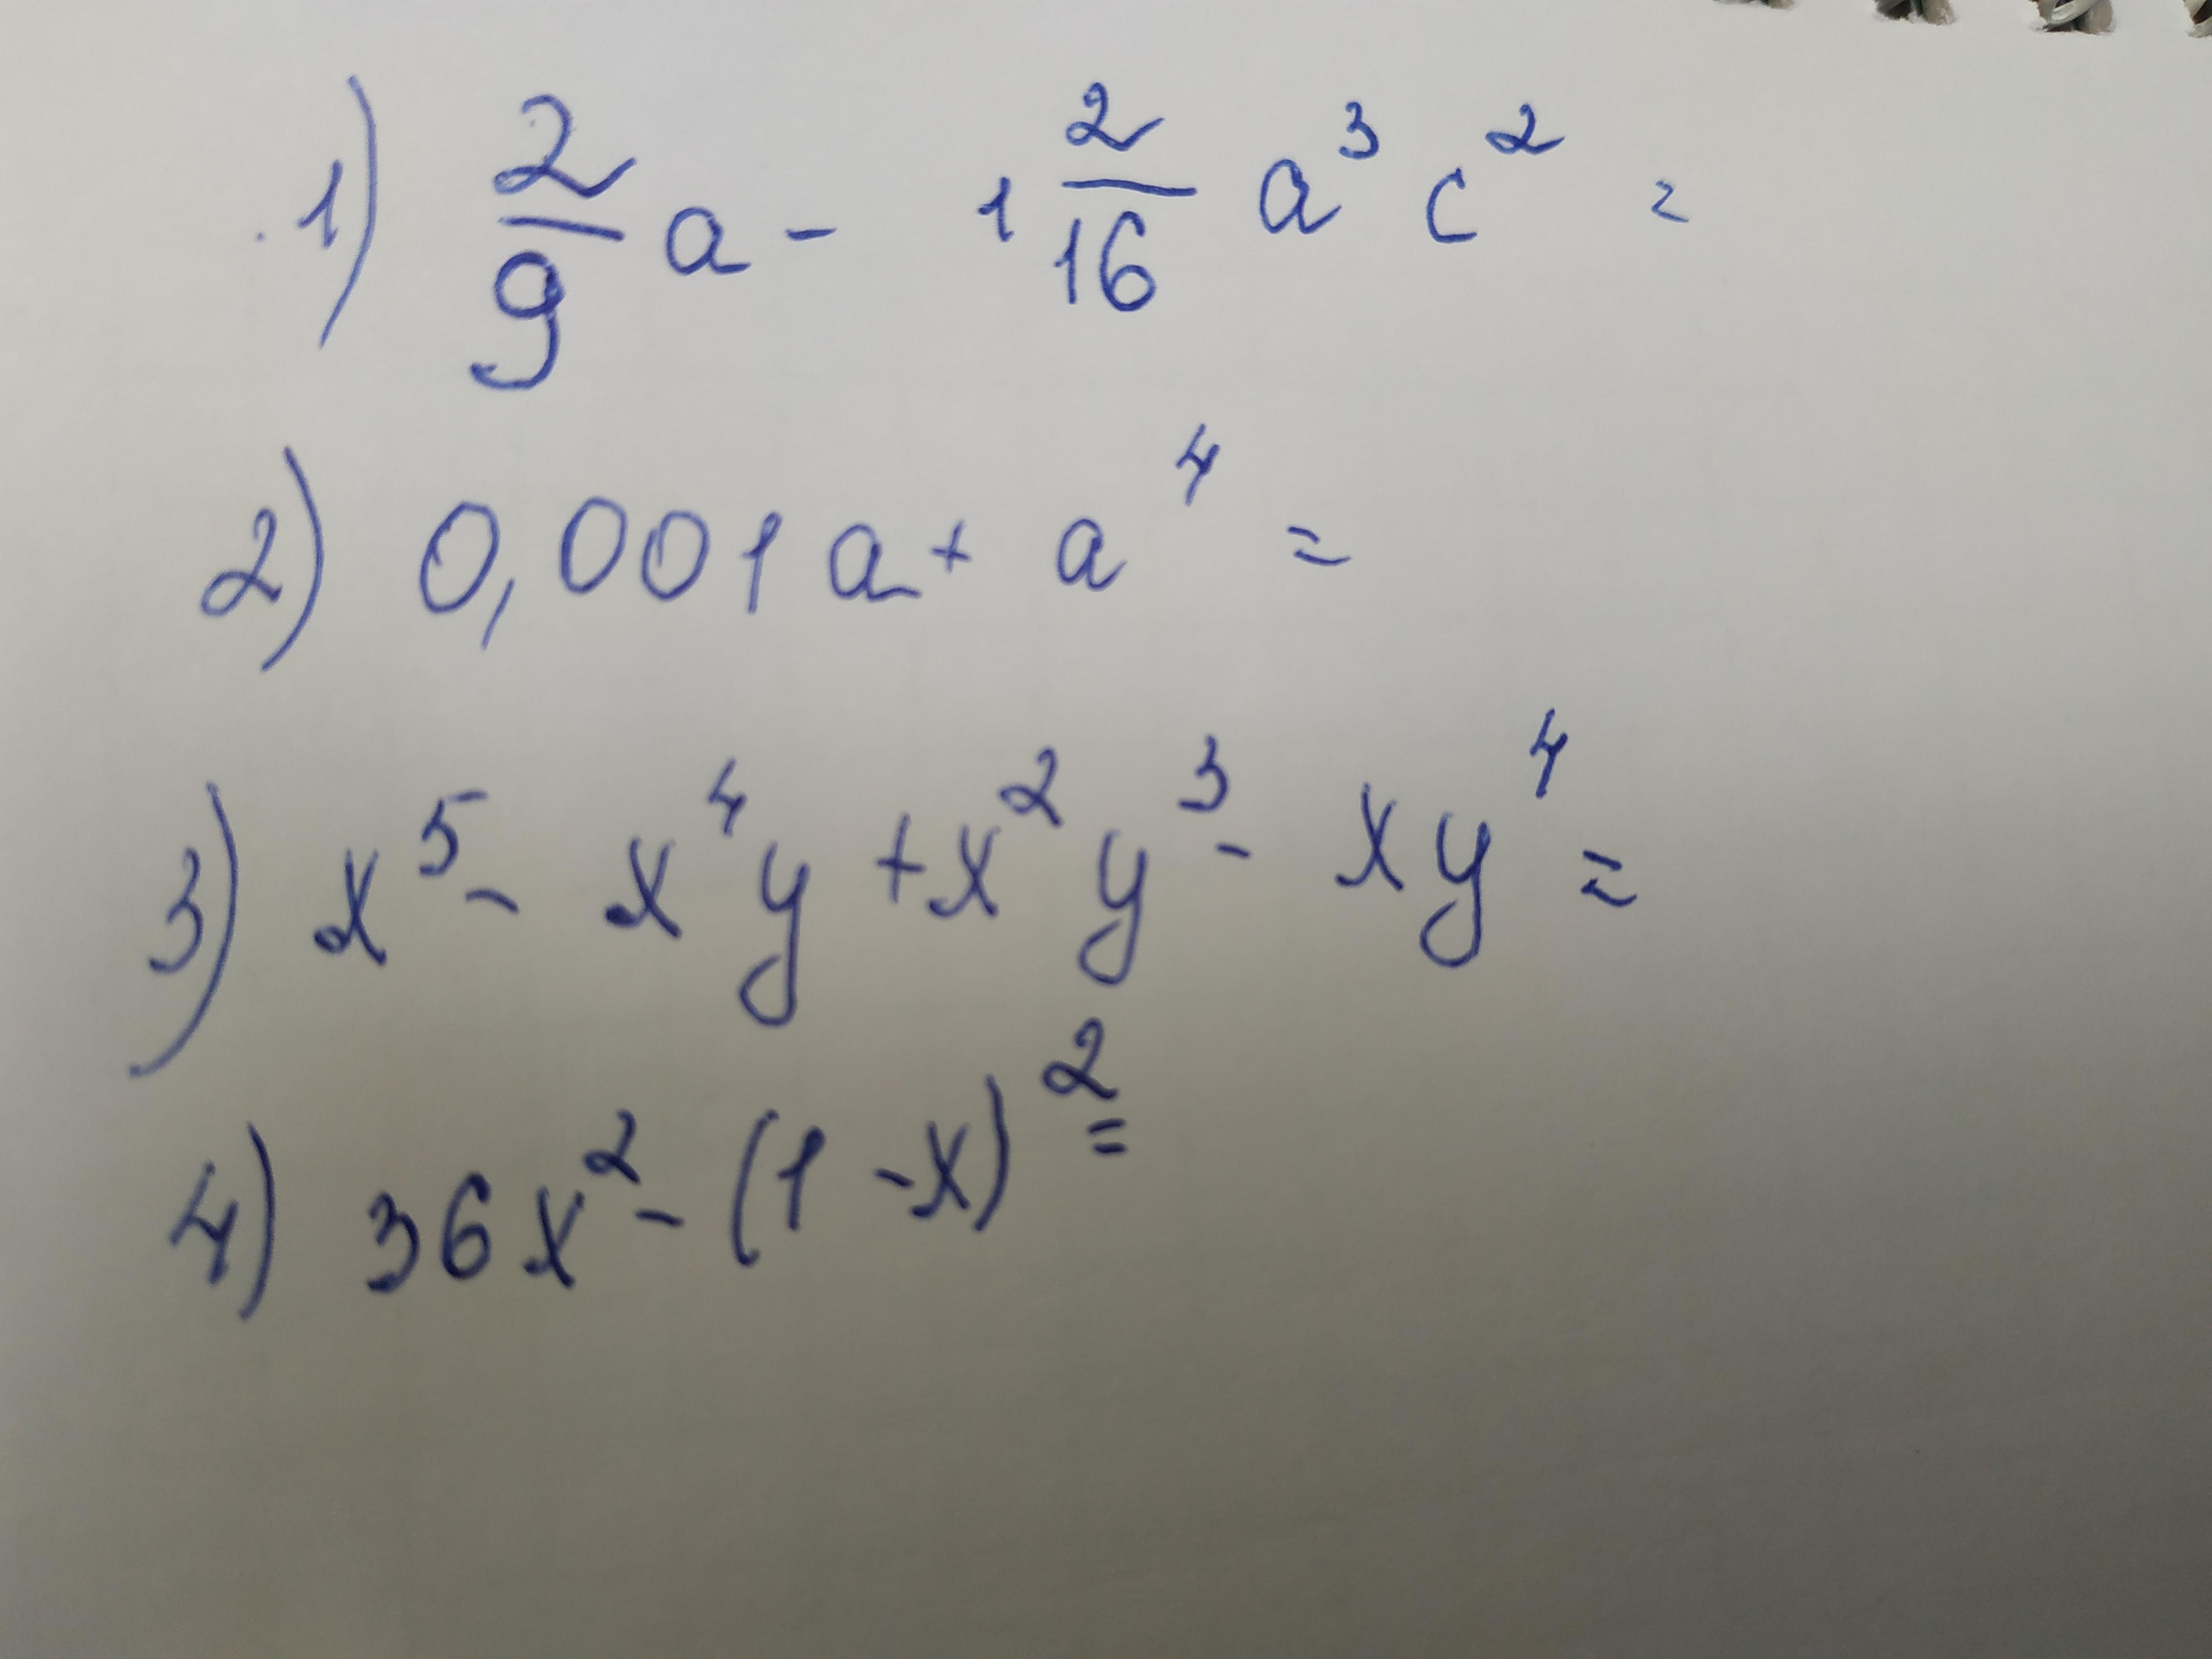 1) 2/9 a - 1 2/16 a³ c² =
2) 0,001 a + a⁴ =
3) x⁵ - x⁴y + x²y³ - xy⁴ =
4) 36x² - (1 - x)² =